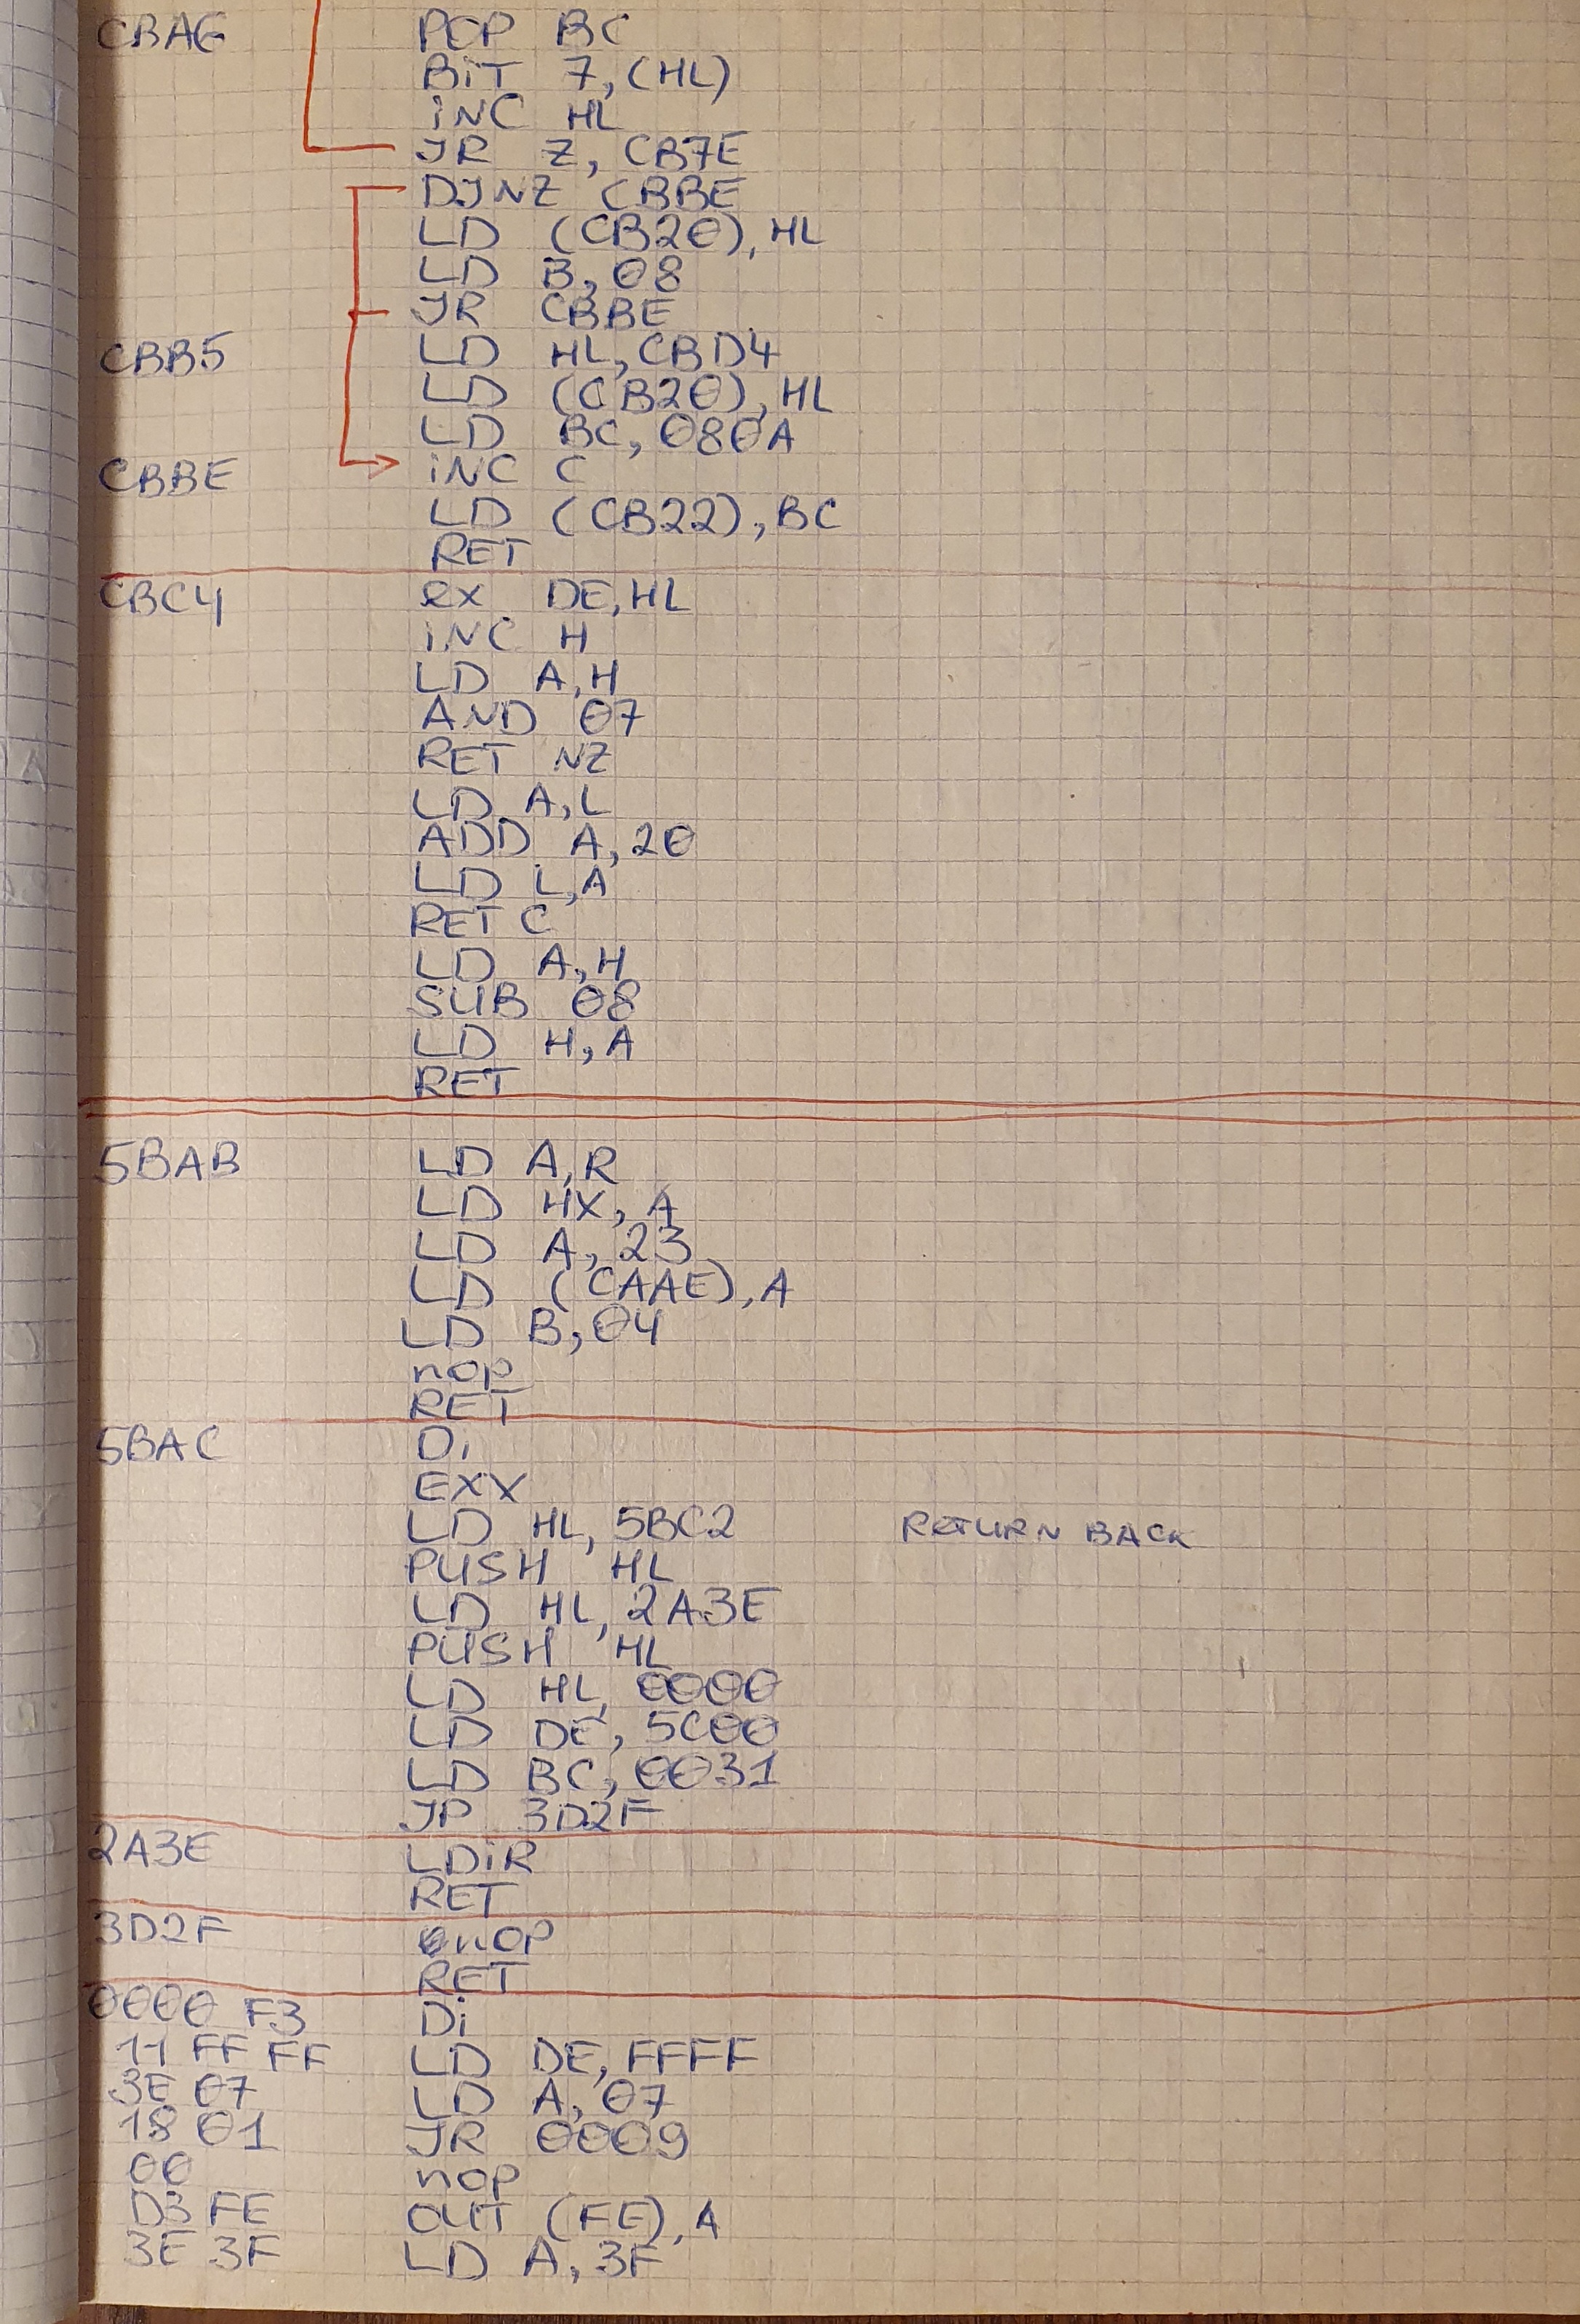 CBAG POP BC
BiT 7,(HL)
iNC HL
JR Z, CB7E
DJNZ CBBE
LD (CB20), HL
LD B, 08
JR CBBE
CBB5 LD HL, CBD4
LD (CB20), HL
LD BC, 080A
CBBE iNC C
LD (CB22), BC
RET
CBC4 ex DE, HL
iNC H
LD A, H
AND 07
RET NZ
LD A, L
ADD A, 20
LD L, A
RET C
LD A, H
SUB 08
LD H, A
RET
5BAB LD A, R
LD HX, A
LD A, 23
LD (CAAE), A
LD B, 04
nop
RET
5BAC Di
EXX
LD HL, 5BC2 RETURN BACK
PUSH HL
LD HL, 2A3E
PUSH HL
LD HL, 0000
LD DE, 5C00
LD BC, 0031
JP 3D2F
2A3E LDiR
RET
3D2F nop
RET
0000 F3 Di
11 FF FF LD DE, FFFF
3E 07 LD A, 07
18 01 JR 0009
00 nop
D3 FE OUT (FE), A
3E 3F LD A, 3F